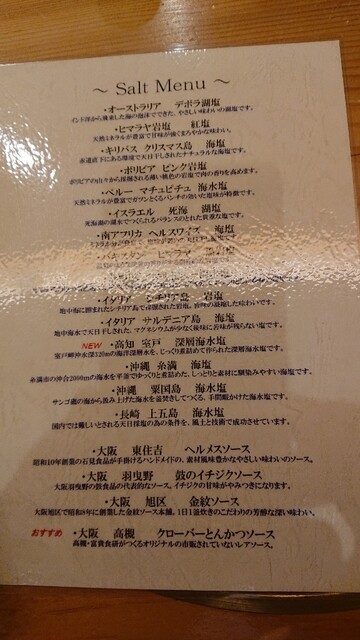 ～ Salt Menu ～
・オーストラリア デボラ湖塩
インド洋から飛来した海の泡沫でできた、やさしい味わいの湖塩です。
・ヒマラヤ岩塩 紅塩
天然ミネラルが豊富で甘味が強くまろやかな味わい。
・キリバス クリスマス島 海塩
赤道直下にある環境で天日干しされたナチュラルな海塩です。
・ボリビア ピンク岩塩
ボリビアの山々から採掘される薄い桃色の岩塩で肉の香りを高めます。
・ペルー マチュピチュ 海水塩
天然ミネラルが豊富でガツンとくるパンチの効いた塩味が特徴です。
・イスラエル 死海 湖塩
死海湖の湖水でつくられるバランスのとれた貴重な塩です。
・南アフリカ ヘルスワイズ 海塩
・パキスタン ヒマラヤ 黒岩塩
・イタリア シチリア島 岩塩
地中海に囲まれたシチリア島で採掘された岩塩。旨味の凝縮した味わいです。
・イタリア サルデニア島 海塩
地中海水で天日干しされた、マグネシウムが少なく後味に苦味が残らない塩です。
NEW ・高知 室戸 深層海水塩
室戸岬沖水深320mの海洋深層水を、じっくり煮詰めて作られた深層海水塩です。
・沖縄 糸満 海塩
糸満市の沖合2000mの海水を平釜でゆっくりと煮詰めた、しっとりと素材に馴染みやすい海塩です。
・沖縄 粟国島 海水塩
サンゴ礁の海から汲み上げた海水を釜焚きしてつくる、手間暇かけた海水塩です。
・長崎 上五島 海水塩
国内では難しいとされる天日採塩の為の条件を、風土と技術で成功させています。
・大阪 東住吉 ヘルメスソース
昭和10年創業の石見食品が手掛けるハンドメイドの、素材風味豊かなやさしい味わいのソース。
・大阪 羽曳野 鼓のイチジクソース
大阪羽曳野の鼓食品の代表的なソース。イチジクの甘味がやみつきになります。
・大阪 旭区 金紋ソース
大阪旭区で昭和8年に創業した金紋ソース本舗。1日1釜炊きのこだわりの芳醇な深い味わい。
おすすめ ・大阪 高槻 クローバーとんかつソース
高槻・富貴食研がつくるオリジナルの市販されていないレアソース。